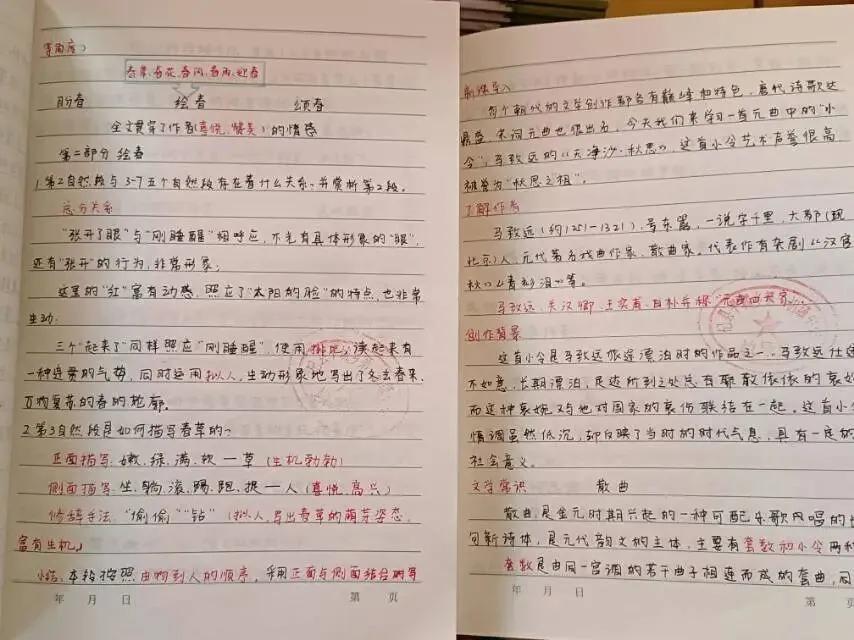 春草、春花、春风、春雨、迎春
盼春 绘春 颂春
全文贯穿了作者(喜悦、赞美)的情感
第二部分 绘春
1.第2自然段与3-7五个自然段存在着什么关系,并赏析第2段。
总分关系
"张开了眼"与"刚睡醒"相呼应,不光有具体形象的"眼",
还有"张开"的行为,非常形象;
这里的"红"富有动感,照应了"太阳的脸"的特点,也非常
生动.
三个"起来了"同样照应"刚睡醒",使用排比,读起来有
一种连贯的气势,同时运用拟人,生动形象地写出了冬去春来,
万物复苏的春的轮廓。
2.第3自然段是如何描写春草的
正面描写:嫩、绿、满、软—草(生机勃勃)
侧面描写:坐、躺、滚、踢、跑、捉—人(喜悦、高兴)
修辞手法:"偷偷""钻"(拟人,写出春草的萌芽姿态,
富有生机)
小结:本段按照由物到人的顺序,采用正面与侧面结合的写
年 月 日 第 页
新课导入
每个朝代的文学创作都各有巅峰和特色,唐代诗歌达
鼎盛,宋词元曲也很出名,今天我们来学习一首元曲中的"小
令",马致远的《天净沙·秋思》,这首小令艺术声誉很高
被誉为"秋思之祖"。
了解作者
马致远(约1251-1321),号东篱,一说字千里,大都(现
北京)人,元代著名戏曲作家、散曲家。代表作有杂剧《汉宫
秋》《青衫泪》等。
马致远、关汉卿、王实甫、白朴并称"元曲四大家"。
创作背景
这首小令是马致远旅途漂泊时的作品之一,马致远仕途
不如意,长期漂泊,足迹所到之处总有
而这种哀婉又与他对国家的哀伤联结在一起。这首小令
情调虽然低沉,却反映了当时的时代气息,具有一定的
社会意义。
文学常识 散曲
散曲,是金元时期兴起的一种可配乐歌唱的长
句新诗体,是元代韵文的主体,主要有套数和小令两种
套数是由同一宫调的若干曲子相连而成的套曲,同
年 月 日 第 页